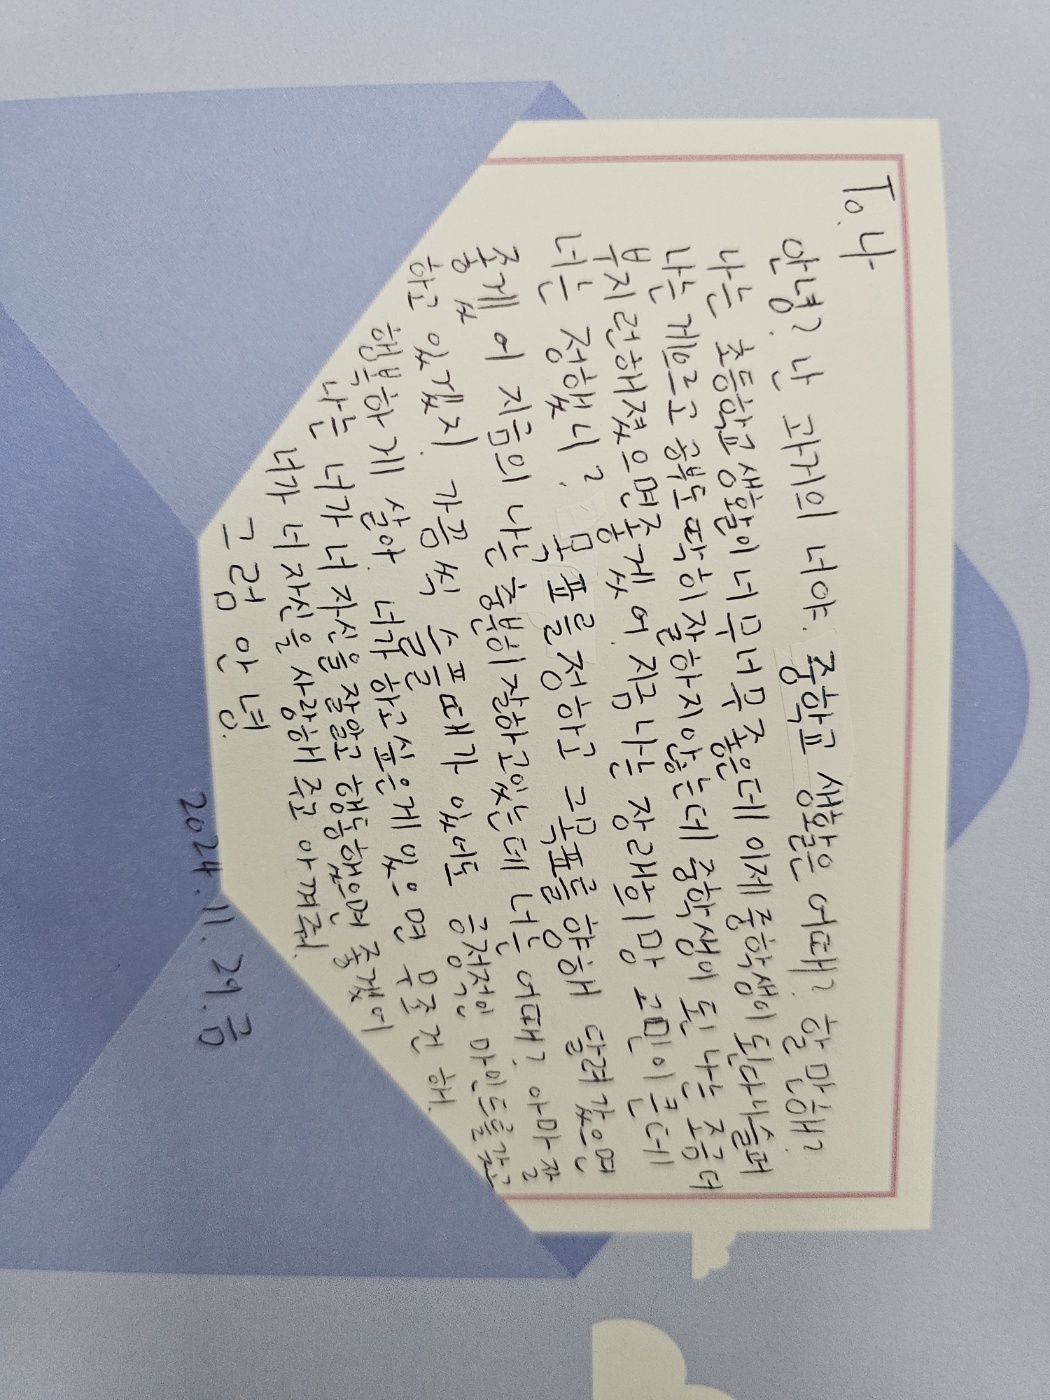 To. 나
안녕? 난 과거의 너야. 중학교 생활은 어때? 할만해?
나는 초등학교 생활이 너무너무 좋은데 이제 중학생이 된다니 슬퍼
나는 게으르고 공부도 딱히 잘하지 않는데 중학생이 된 나는 조금 더
부지런해졌으면 좋겠어. 지금 나는 장래희망 고민이 큰데
너는 정했니? 목표를 정하고 그 목표를 향해 달려갔으면
좋겠어 지금의 나는 충분히 잘하고 있는데 넌 어때? 아마 잘
하고 있겠지. 가끔씩 슬플때가 있어도 긍정적인 마인드를 갖고
행복하게 살아. 너가 하고싶은게 있으면 무조건 해.
나는 너가 너 자신을 잘 알고 행동했으면 좋겠어
너가 너 자신을 사랑해 주고 아껴줘.
그럼 안녕.
2024. 11. 29. 금